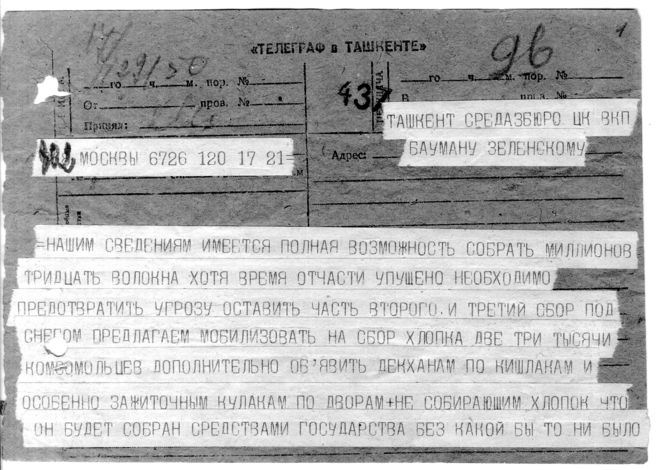 «ТЕЛЕГРАФ в ТАШКЕНТЕ»
1
17/
29/50
96
го ч. м. пор. №
го ч. м. пор. №
От пров. №
В пров. №
Принял:
43
ТАШКЕНТ СРЕДАЗБЮРО ЦК ВКП
МОСКВЫ 6726 120 17 21=
Адрес:
БАУМАНУ ЗЕЛЕНСКОМУ
=НАШИМ СВЕДЕНИЯМ ИМЕЕТСЯ ПОЛНАЯ ВОЗМОЖНОСТЬ СОБРАТЬ МИЛЛИОНОВ
ТРИДЦАТЬ ВОЛОКНА ХОТЯ ВРЕМЯ ОТЧАСТИ УПУЩЕНО НЕОБХОДИМО
ПРЕДОТВРАТИТЬ УГРОЗУ ОСТАВИТЬ ЧАСТЬ ВТОРОГО.И ТРЕТИЙ СБОР ПОД
СНЕГОМ ПРЕДЛАГАЕМ МОБИЛИЗОВАТЬ НА СБОР ХЛОПКА ДВЕ ТРИ ТЫСЯЧИ
КОМСОМОЛЬЦЕВ ДОПОЛНИТЕЛЬНО ОБ'ЯВИТЬ ДЕКХАНАМ ПО КИШЛАКАМ И
ОСОБЕННО ЗАЖИТОЧНЫМ КУЛАКАМ ПО ДВОРАМ+НЕ СОБИРАЮЩИМ ХЛОПОК ЧТО
ОН БУДЕТ СОБРАН СРЕДСТВАМИ ГОСУДАРСТВА БЕЗ КАКОЙ БЫ ТО НИ БЫЛО